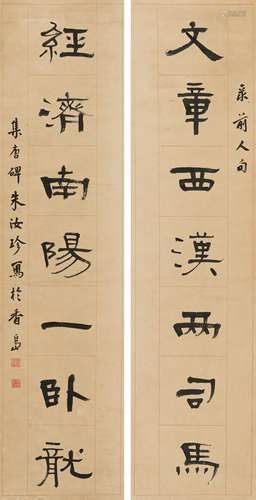 文章西漢兩司馬
彔前人句
經濟南陽一臥龍
集唐碑朱汝珍寫於香島